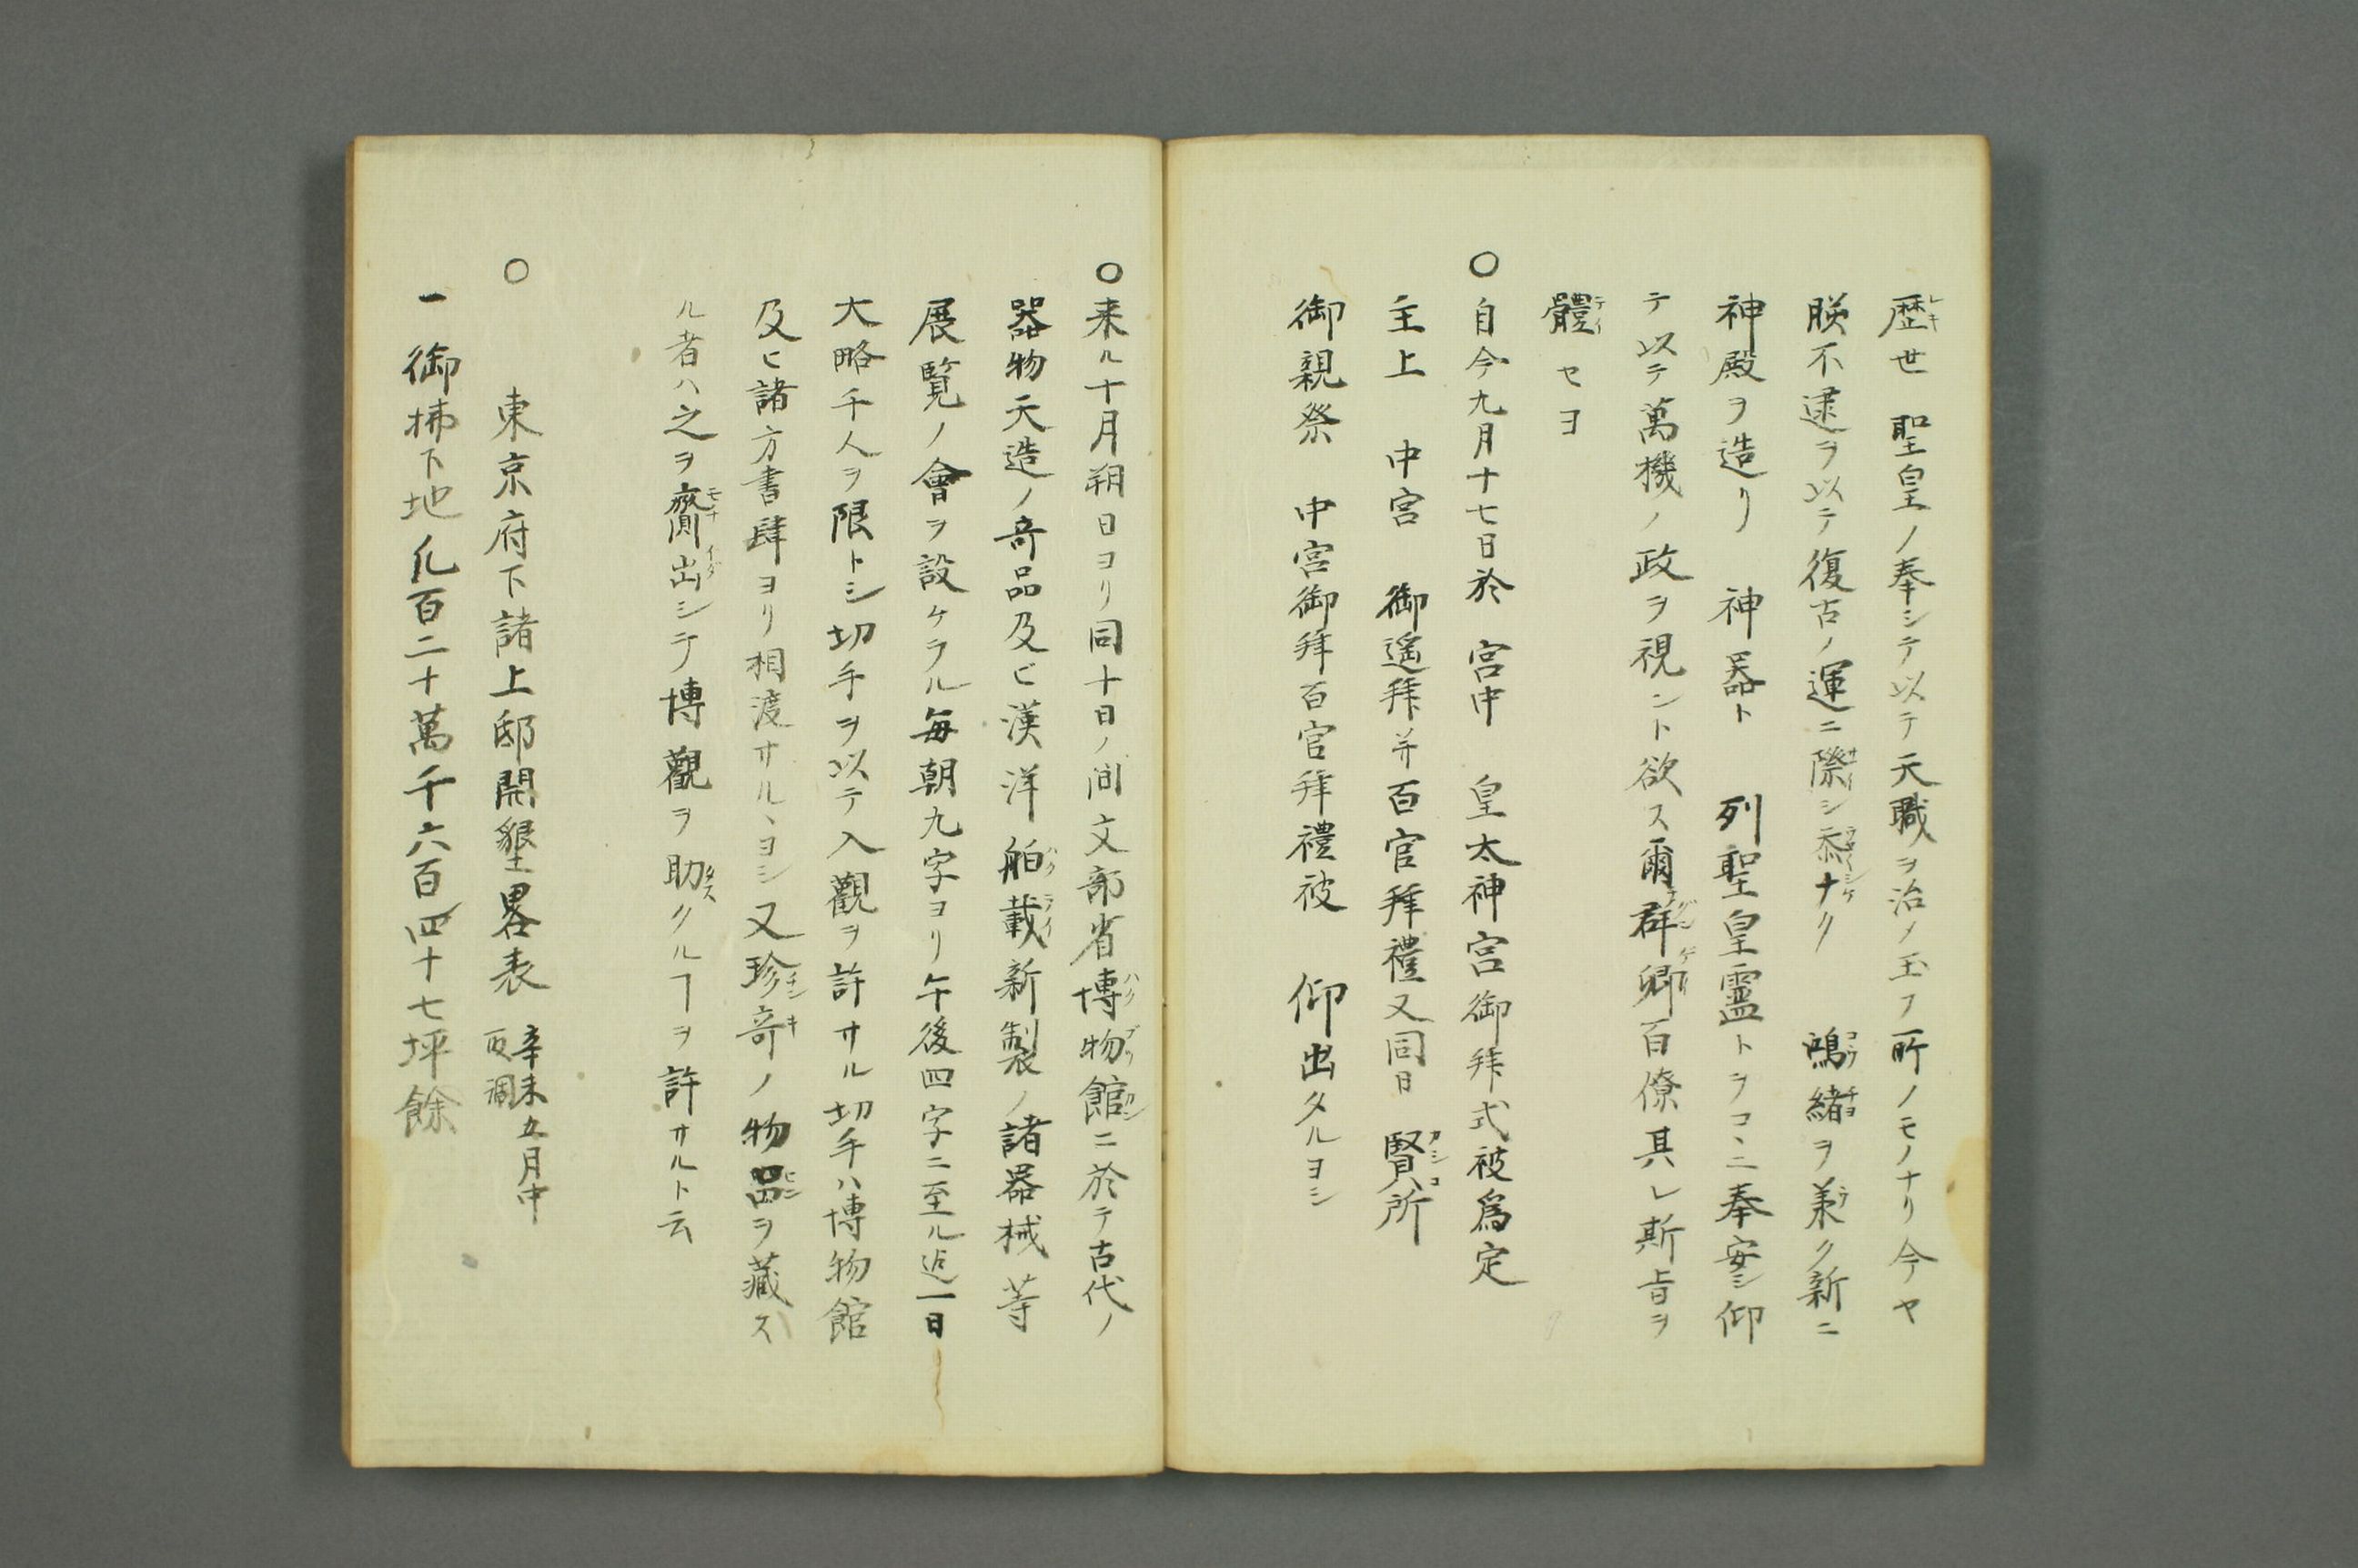 歴世　聖皇ノ奉シテ以テ天職ヲ治ノ玉フ所ノモノナリ今ヤ
朕不逮ヲ以テ復古ノ運ニ際シ忝ナク　鴻緒ヲ兼ク新ニ
神殿ヲ造リ　神器ト　列聖皇霊トヲコヽニ奉安シ仰
テ以テ萬機ノ政ヲ視ント欲ス爾群卿百僚其レ斯旨ヲ
體セヨ
〇自今九月十七日於　宮中　皇太神宮御拜式被爲定
主上　中宮　御遙拜并百官拜禮又同日　賢所
御親祭　中宮御拜百官拜禮被　仰出タルヨシ
〇来ル十月朔日ヨリ同十日ノ間文部省博物館ニ於テ古代ノ
器物天造ノ奇品及ビ漢洋舶載新製ノ諸器械等
展覧ノ會ヲ設ケラル毎朝九字ヨリ午後四字ニ至ル迠一日
大略千人ヲ限トシ切手ヲ以テ入觀ヲ許サル切手ハ博物館
及ヒ諸方書肆ヨリ相渡サルヽヨシ又珍奇ノ物品ヲ藏ス
ル者ハ之ヲ齎出シテ博觀ヲ助クルヿヲ許サルト云
〇　東京府下諸上邸開墾畧表　辛未五月中
改調
一御拂下地凡百二十萬千六百四十七坪餘